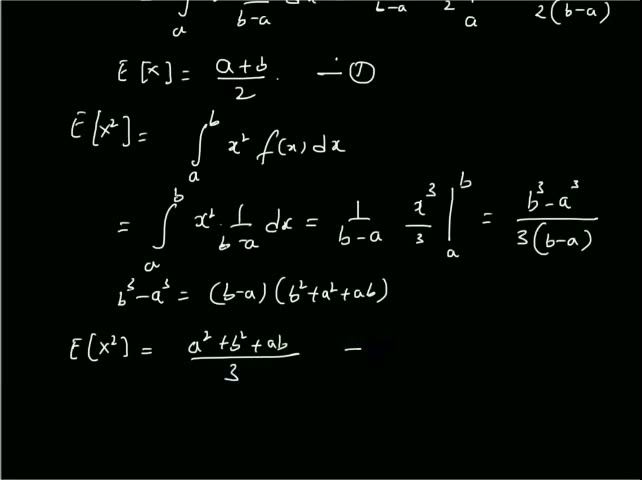 ∫ₐ b-a b-a 2 a 2(b-a)
E[x] = (a+b)/2. — ①
E[x²] = ∫ₐᵇ x² f(x) dx
= ∫ₐᵇ x² · 1/(b-a) dx = 1/(b-a) x³/3 |ₐᵇ = (b³-a³)/(3(b-a))
b³-a³ = (b-a)(b²+a²+ab)
E[x²] = (a²+b²+ab)/3 —